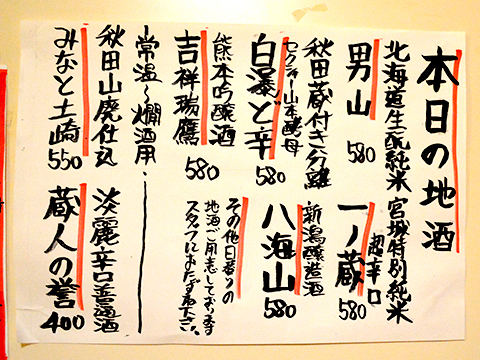 本日の地酒
北海道生酛純米
男山
580
宮城特別純米
超辛口
一ノ蔵
580
秋田蔵付き分離
セクシャー山本酵母
白瀑ど辛
580
新潟醸造酒
八海山
580
熊本吟醸酒
吉祥瑞鷹
580
その他日替りの
地酒ご用意しております
スタッフにおたずね下さい。
常温〜燗酒用
秋田山廃仕込
みなと土崎
550
淡麗辛口普通酒
蔵人の誉
400